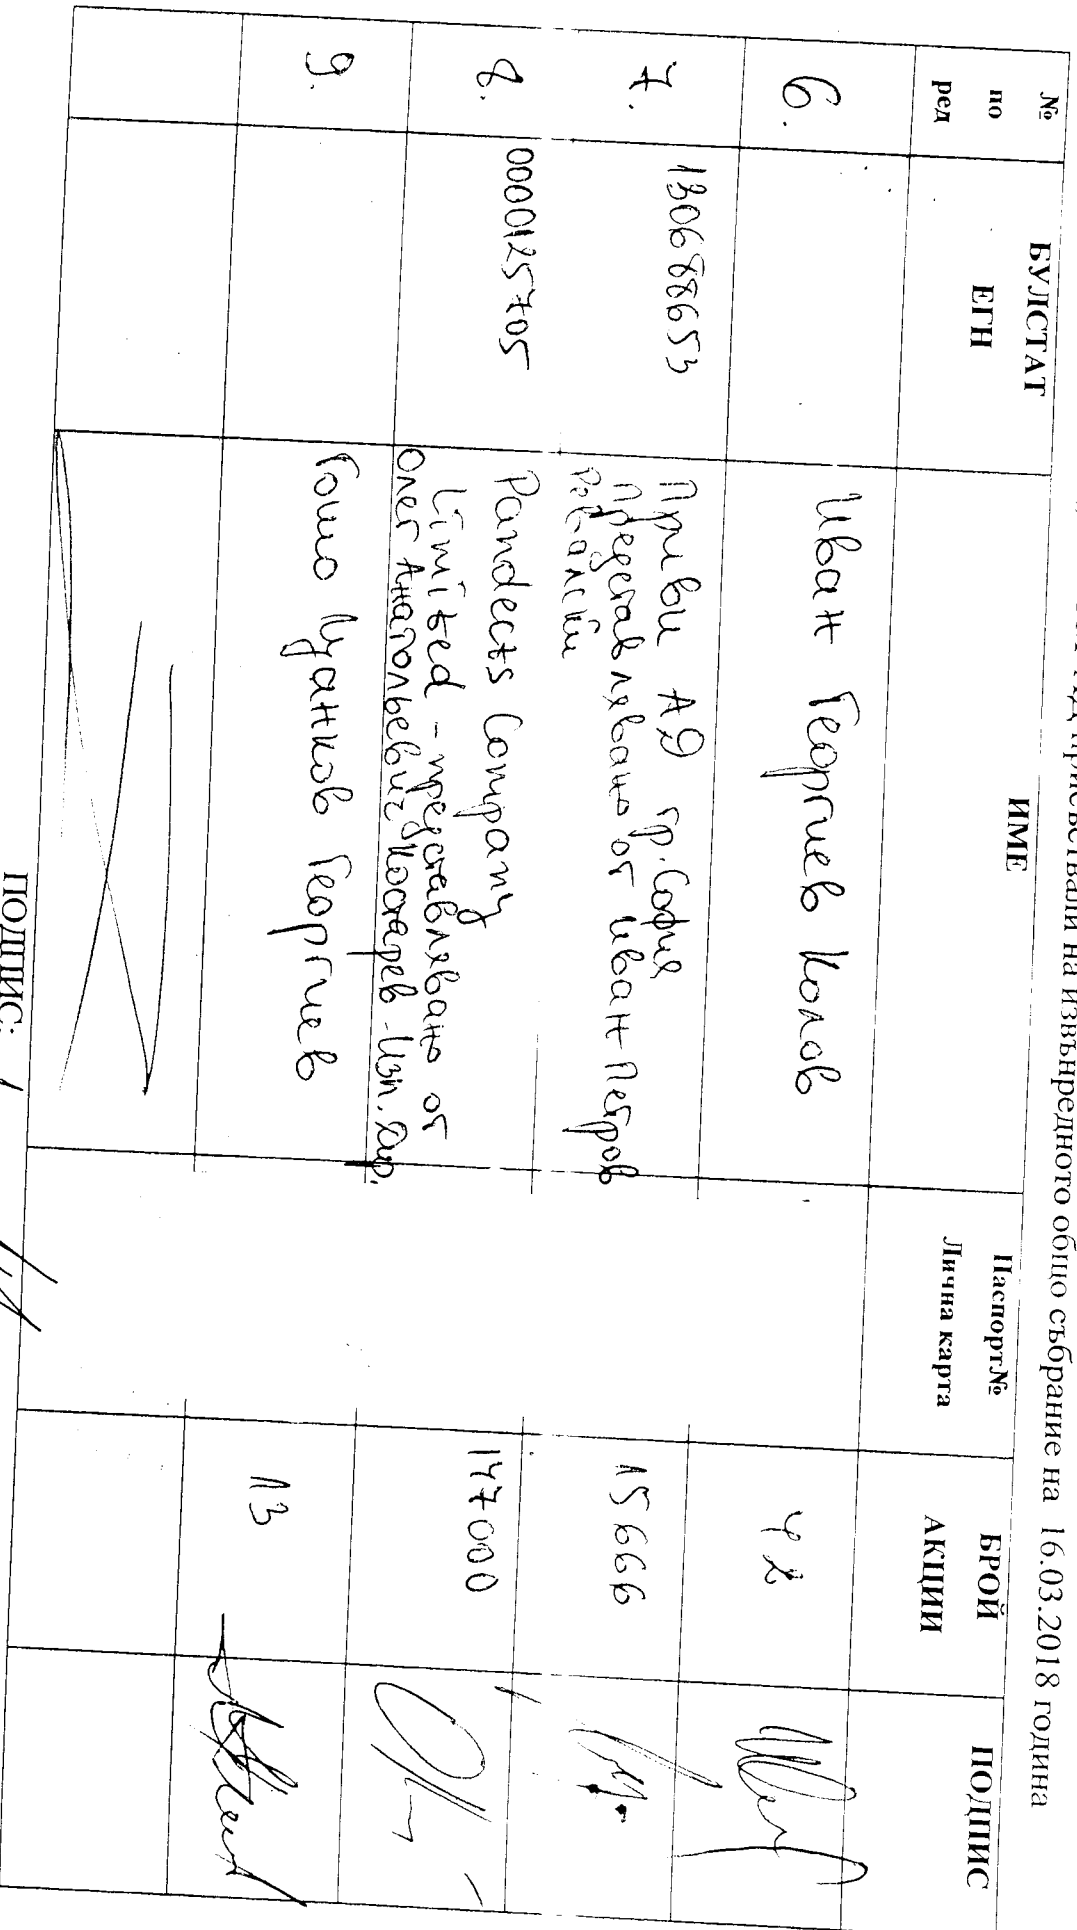 присъствали на извънредното общо събрание на 16.03.2018 година
№ по ред
БУЛСТАТ ЕГН
ИМЕ
Паспорт№ Лична карта
БРОЙ АКЦИИ
ПОДПИС
6. Иван Георгиев Колов 42
7. 130688653 Приви АД гр. София 15666
представлявано от Иван Петров
Ревалски
8. 0000125705 Pandects Company 147000
Limited - представлявано от
Олег Анатольевич Костарев - Изп. дир.
9. Гошо Цанков Георгиев 13
ПОДПИС: